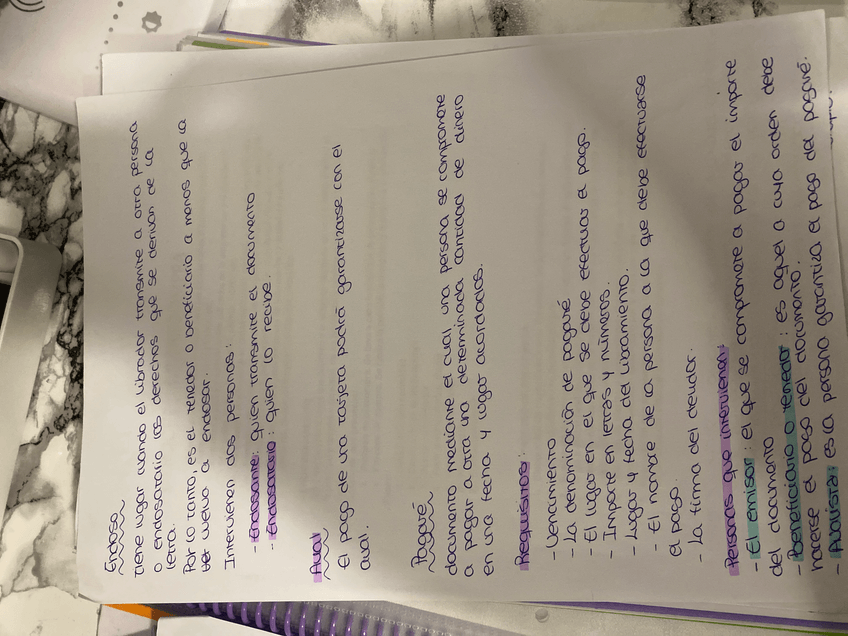 Endoso
Tiene lugar cuando el librador transmite a otra persona
o endosatario los derechos que se derivan de la
letra.
Por lo tanto, es el tenedor o beneficiario a menos que la
vuelva a endosar.
Intervienen dos personas:
- Endosante: quien transmite el documento
- Endosatario: quien lo recibe.
Aval
El pago de una tarjeta podrá garantizarse con el
aval.
Pagaré
documento mediante el cual una persona se compromete
a pagar a otra una determinada cantidad de dinero
en una fecha y lugar acordados.
Requisitos:
- Vencimiento
- La denominación de pagaré
- El lugar en el que se debe efectuar el pago.
- Importe en letras y números.
- Lugar y fecha del libramiento.
- El nombre de la persona a la que debe efectuarse
el pago.
- La firma del deudor.
Personas que intervienen:
- El emisor: el que se compromete a pagar el importe
del documento
- Beneficiario o tenedor: es aquel a cuya orden debe
hacerse el pago del documento.
- Avalista: es la persona garantiza el pago del pagaré.